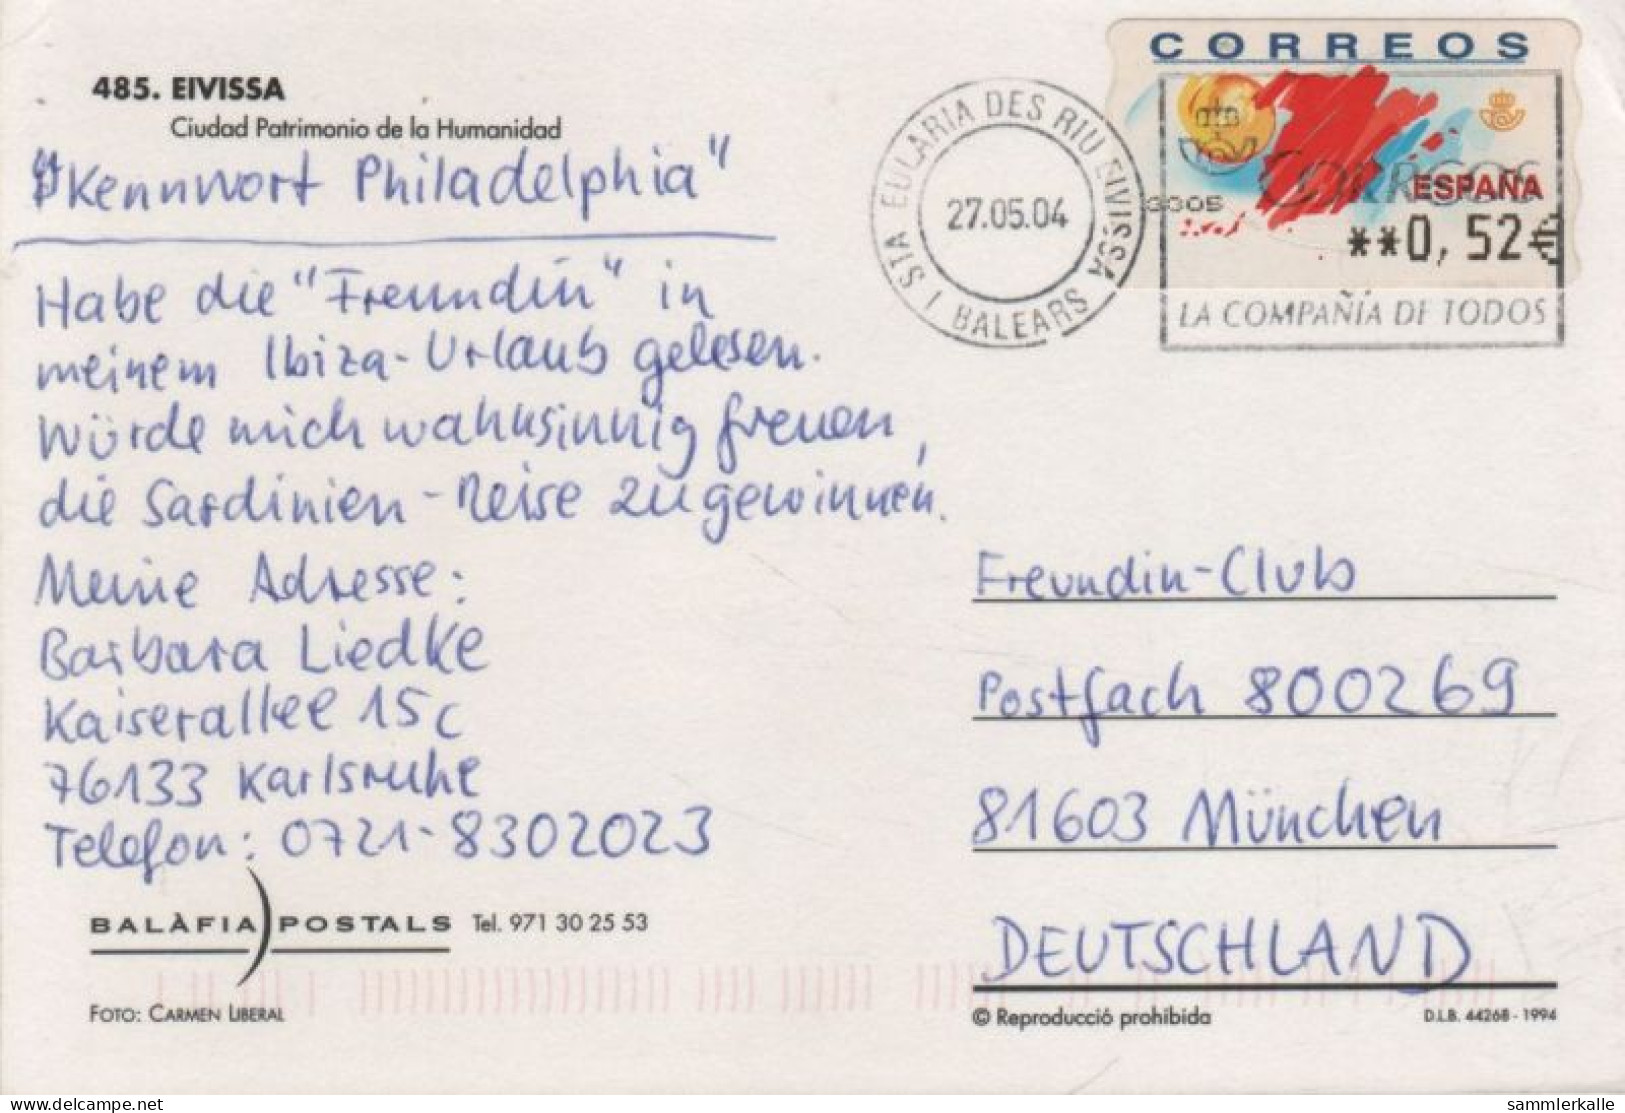 485. EIVISSA
Ciudad Patrimonio de la Humanidad
"Kennwort Philadelphia"
Habe die "Freundin" in
meinem Ibiza-Urlaub gelesen.
Würde mich wahnsinnig freuen,
die Sardinien-Reise zu gewinnen.
Meine Adresse:
Barbara Liedke
Kaiserallee 15c
76133 Karlsruhe
Telefon: 0721-8302023
BALÀFIA POSTALS Tel. 971 30 25 53
FOTO: CARMEN LIBERAL
CORREOS
ESPAÑA
**0,52€
STA EULARIA DES RIU EIVISSA
27.05.04
I BALEARS
3305
CORREOS
LA COMPAÑÍA DE TODOS
Freundin-Club
Postfach 800269
81603 München
DEUTSCHLAND
© Reproducció prohibida
D.L.B. 44268 - 1994
www.delcampe.net
sammlerkalle